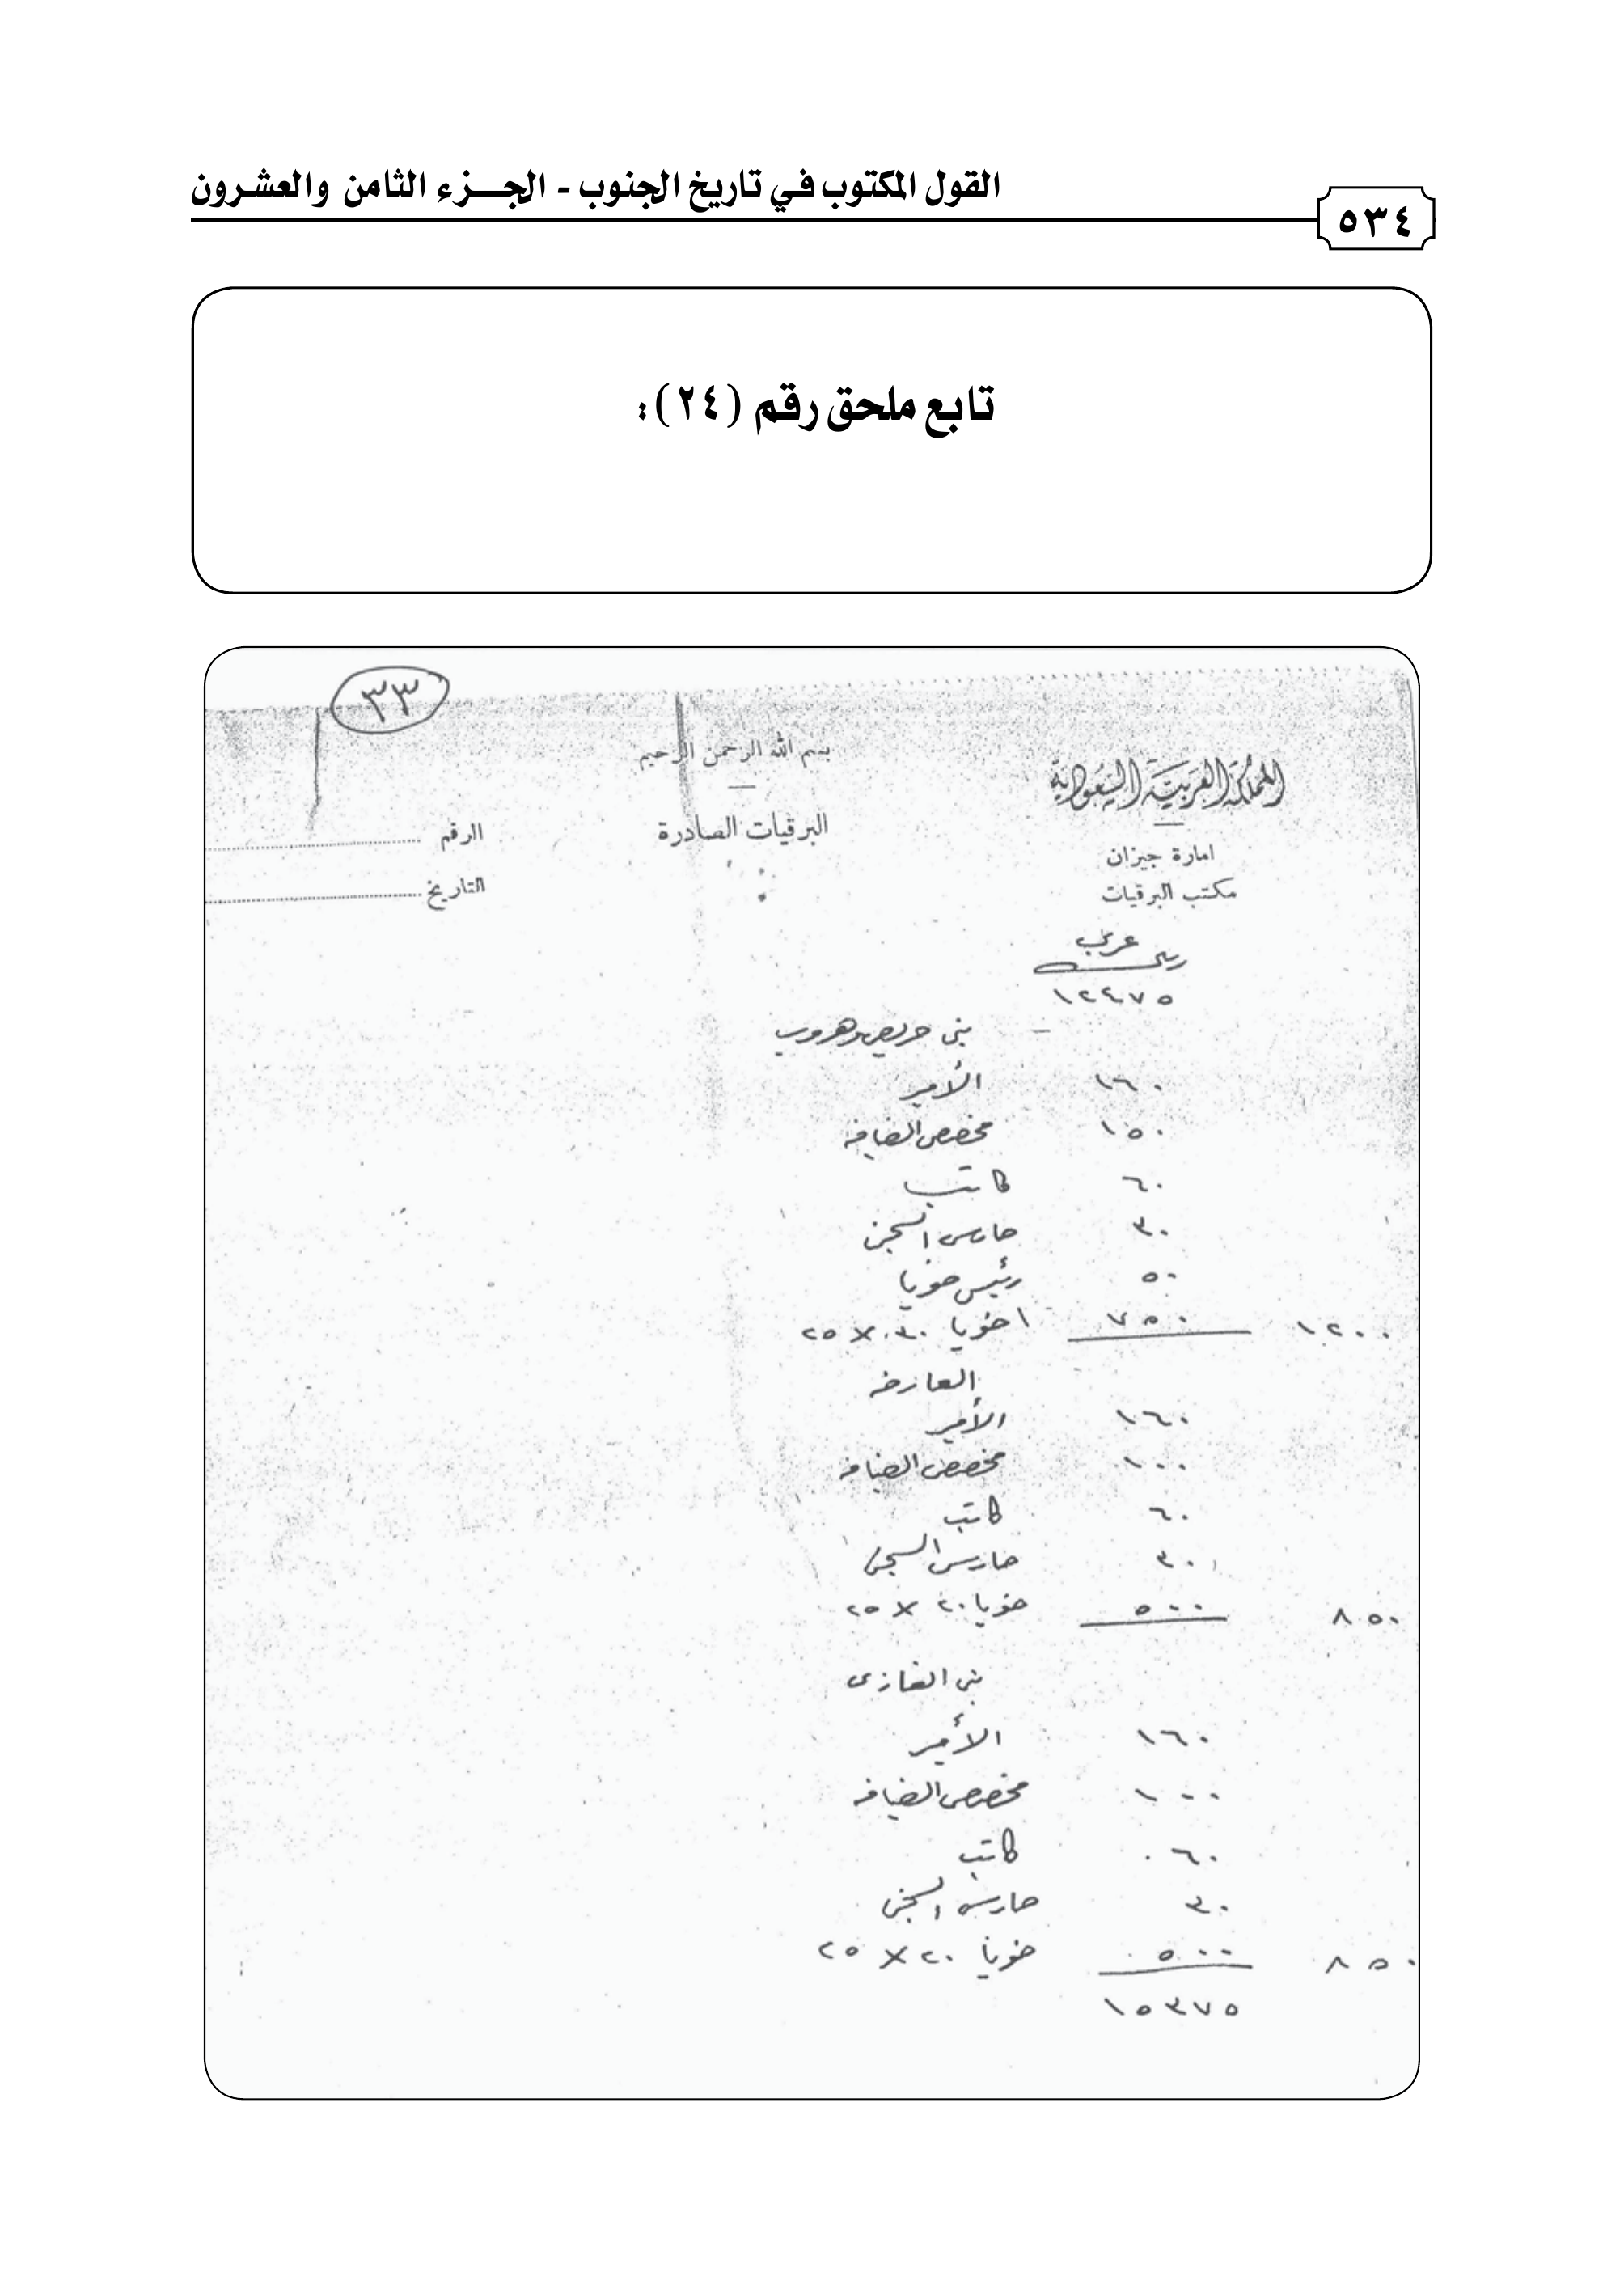 القول المكتوب في تاريخ الجنوب - الجـــزء الثامن والعشرون
٥٣٤
تابع ملحق رقم (٢٤):
٣٣
بسم الله الرحمن الرحيم
المملكة العربية السعودية
البرقيات الصادرة
امارة جيزان
مكتب البرقيات
الرقم
التاريخ
ريال عربي
١٢٤٧٥
بني حريص وهروب
١٦٠ الأمير
١٥٠ مخصص الضيافه
٦٠ كاتب
٣٠ حارس السجن
٥٠ رئيس خويا
١٢٠٠ ٧٥٠ اخويا ٣٠ × ٢٥
العارضه
١٦٠ الأمير
١٠٠ مخصص الضيافه
٦٠ كاتب
٣٠ حارس السجن
٨٥٠ ٥٠٠ خويا ٢٠ × ٢٥
بني الغازى
١٦٠ الأمير
١٠٠ مخصص الضيافه
٦٠ كاتب
٣٠ حارس السجن
٨٥٠ ٥٠٠ خويا ٢٠ × ٢٥
١٥٣٧٥